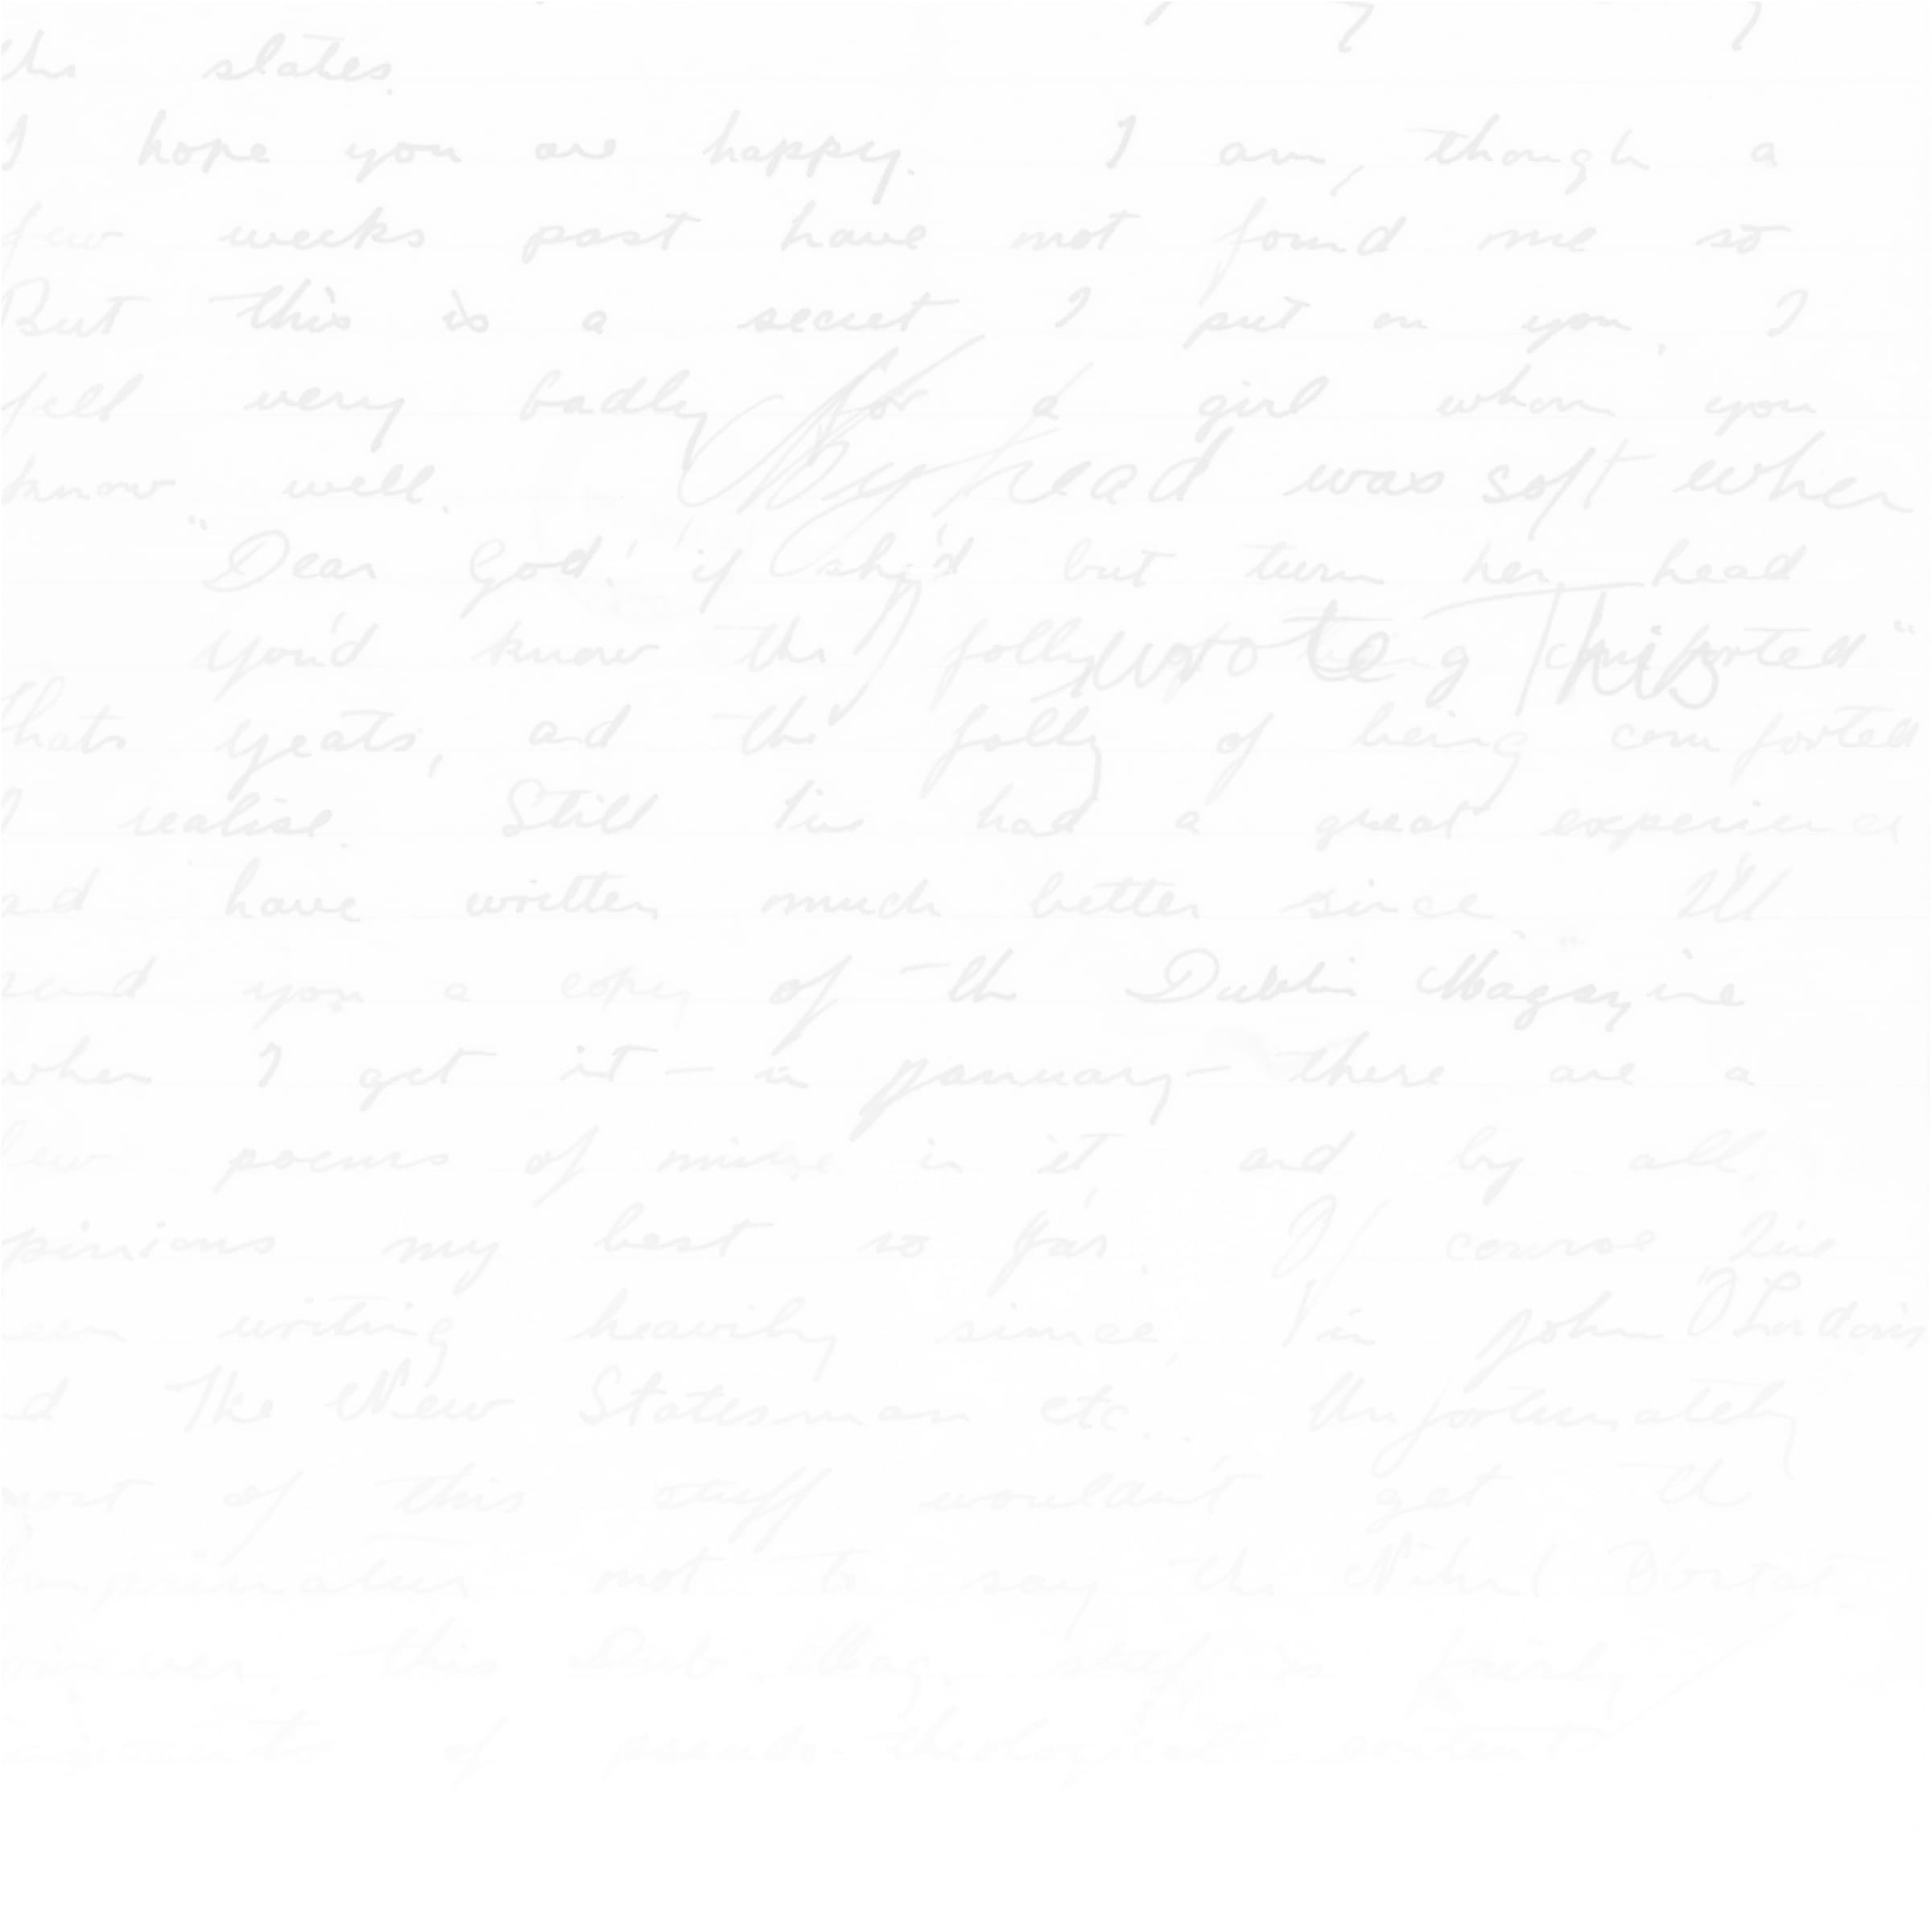 the slates.
I hope you are happy. I am, though a
few weeks past have not found me so
But this is a secret I put on you. I
fell very badly for a girl whom you
know well. My head was soft when
"Dear God! if she'd but turn her head
You'd know the folly of being comforted"
I wrote This
thats Yeats, and the folly of being comforted
I realise. Still I've had a great experience
and have written much better since. I'll
send you a copy of the "Dublin Magazine
when I get it — in January — there are a
few poems of mine in it and by all
opinions my best so far. Of course I've
been writing heavily since, in John O'Londons
and The New Statesman etc. Unfortunately
most of this stuff wouldn't get the
imprimatur not to say the Nihil Obstat.
this Dub. Mag. stuff is fairly
of pseudo-theological content